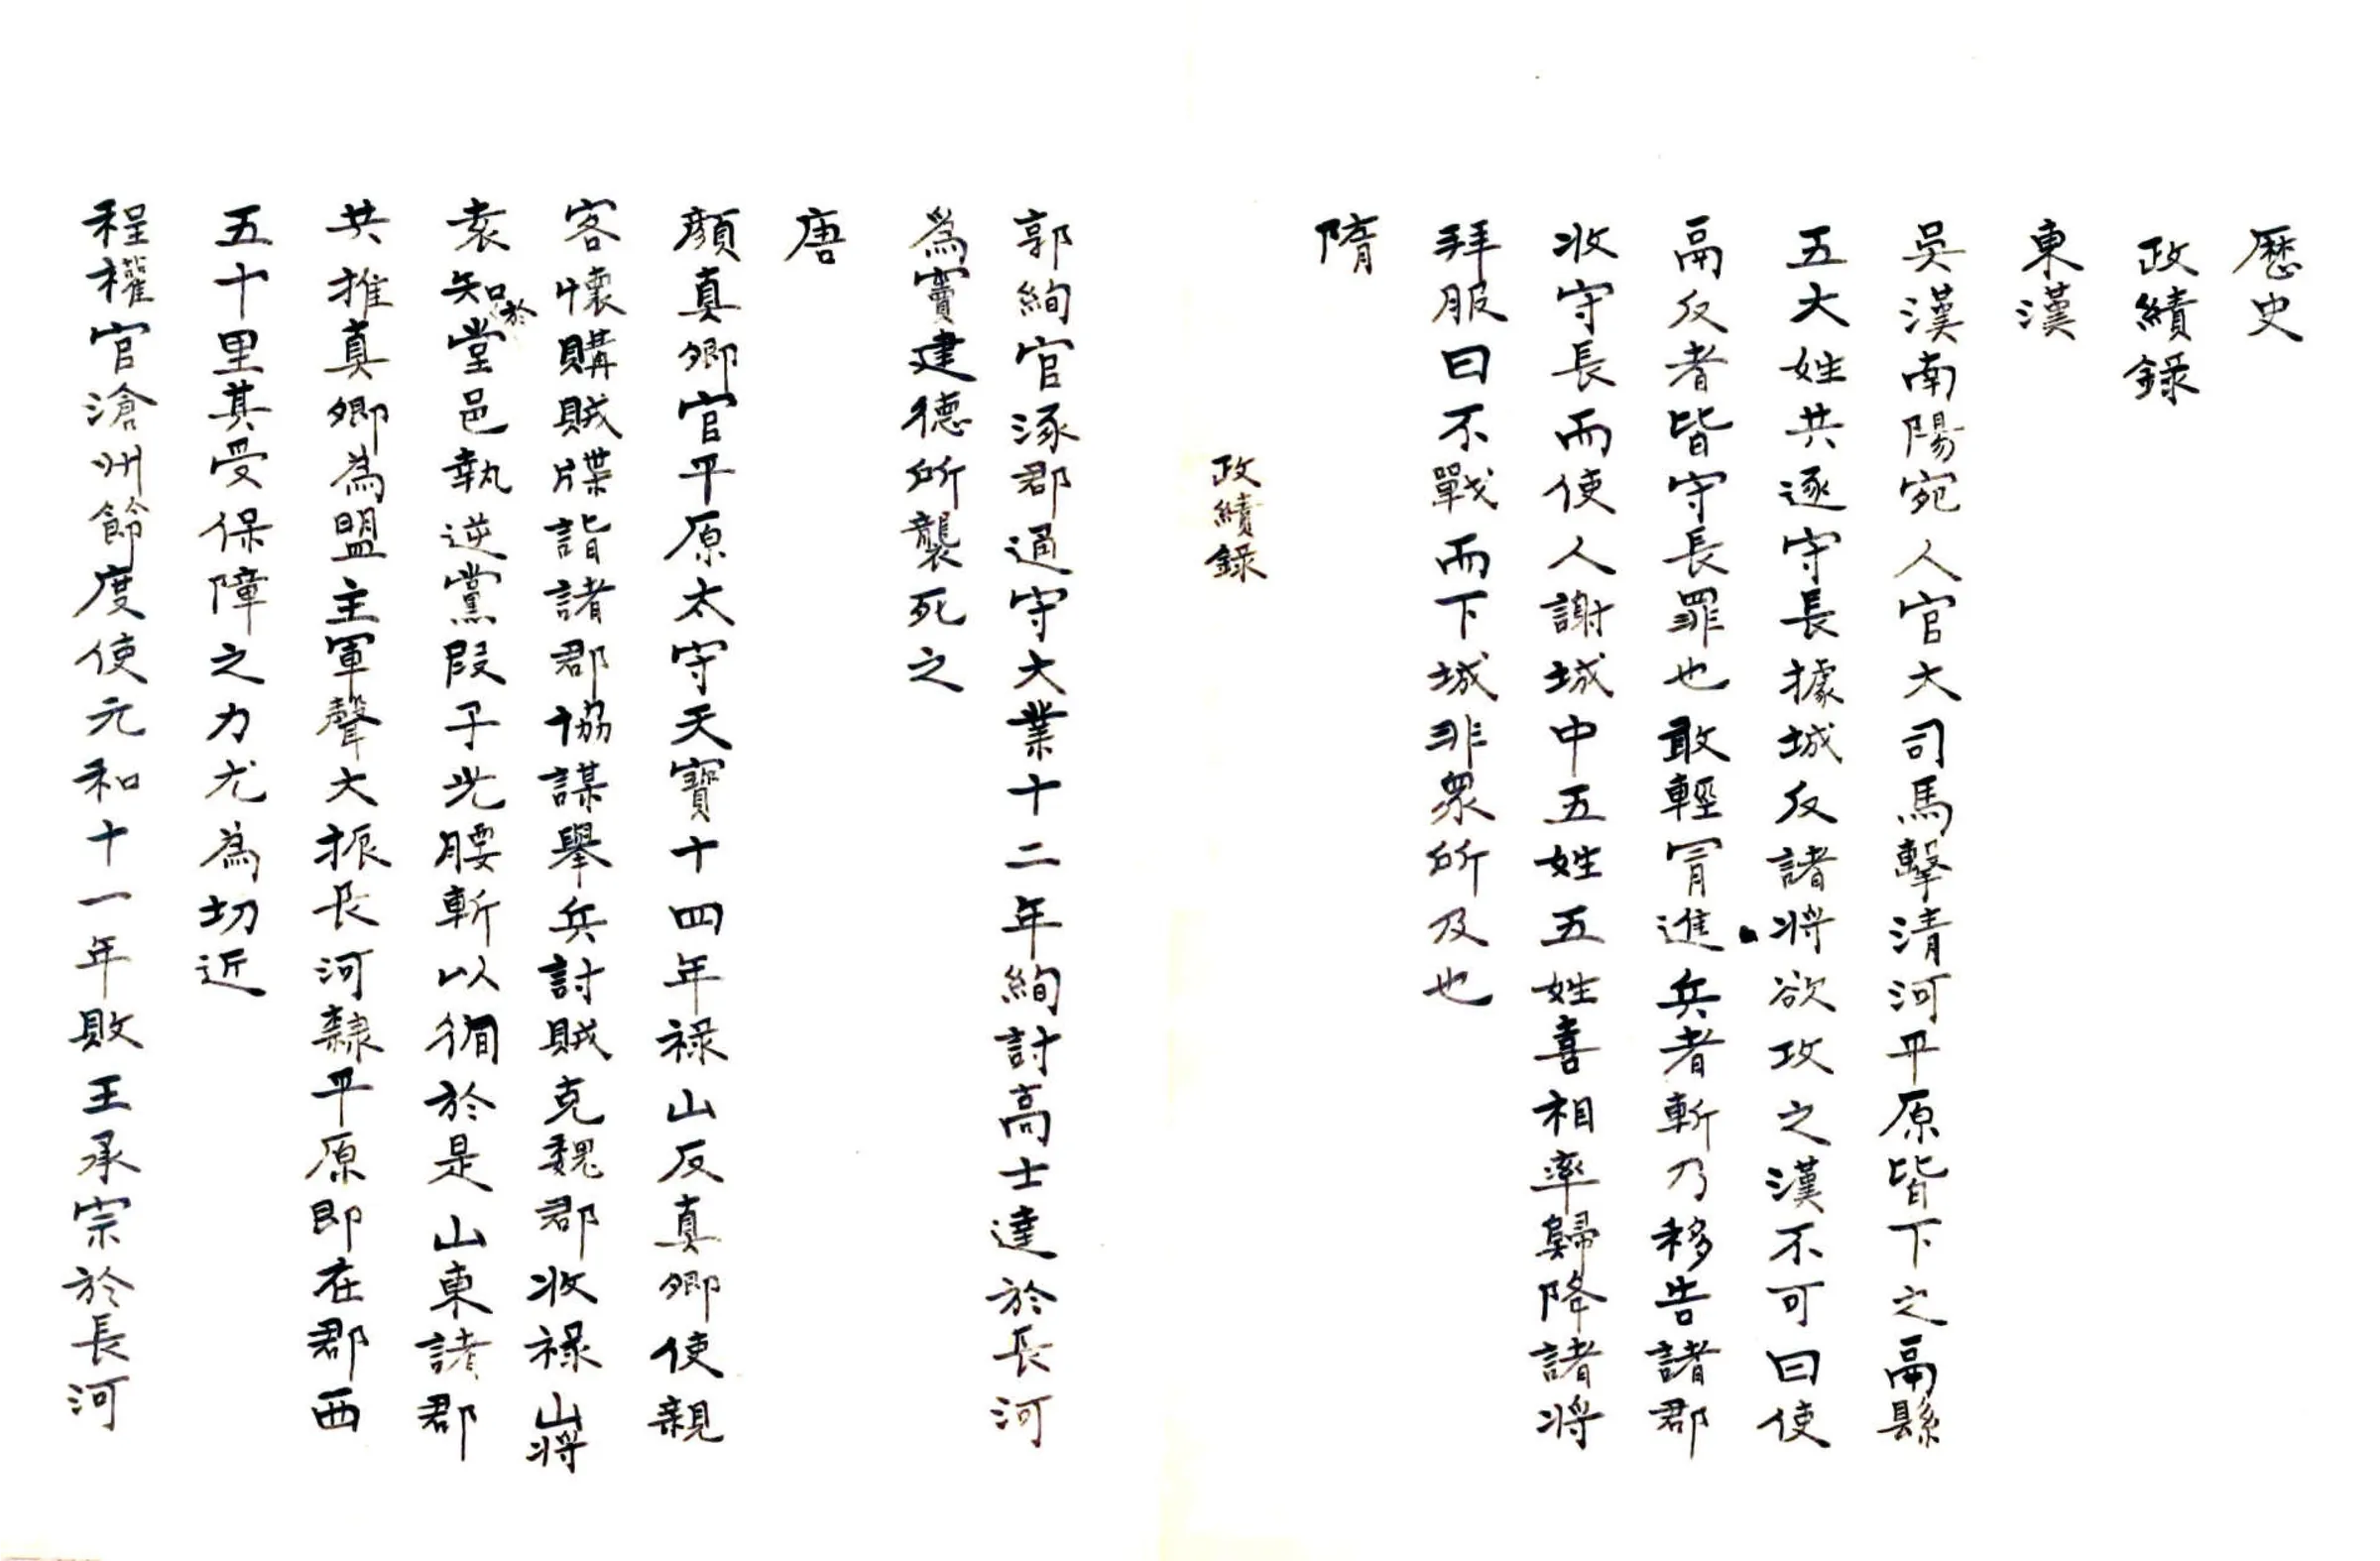 歷史
政績錄
東漢
吳漢南陽宛人官大司馬擊清河平原皆下之鬲縣
五大姓共逐守長據城反諸将欲攻之漢不可曰使
鬲反者皆守長罪也敢輕冐進兵者斬乃移告諸郡
收守長而使人謝城中五姓五姓喜相率歸降諸将
拜服曰不戰而下城非眾所及也
隋
政績錄
郭絢官涿郡通守大業十二年絢討高士達於長河
為竇建德所襲死之
唐
顏真卿官平原太守天寶十四年祿山反真卿使親
客懷購賊牒詣諸郡協謀舉兵討賊克魏郡收祿山将
袁知於堂邑執逆黨段子光腰斬以徇於是山東諸郡
共推真卿為盟主軍聲大振長河隸平原即在郡西
五十里其受保障之力尤為切近
程權官滄州節度使元和十一年敗王承宗於長河